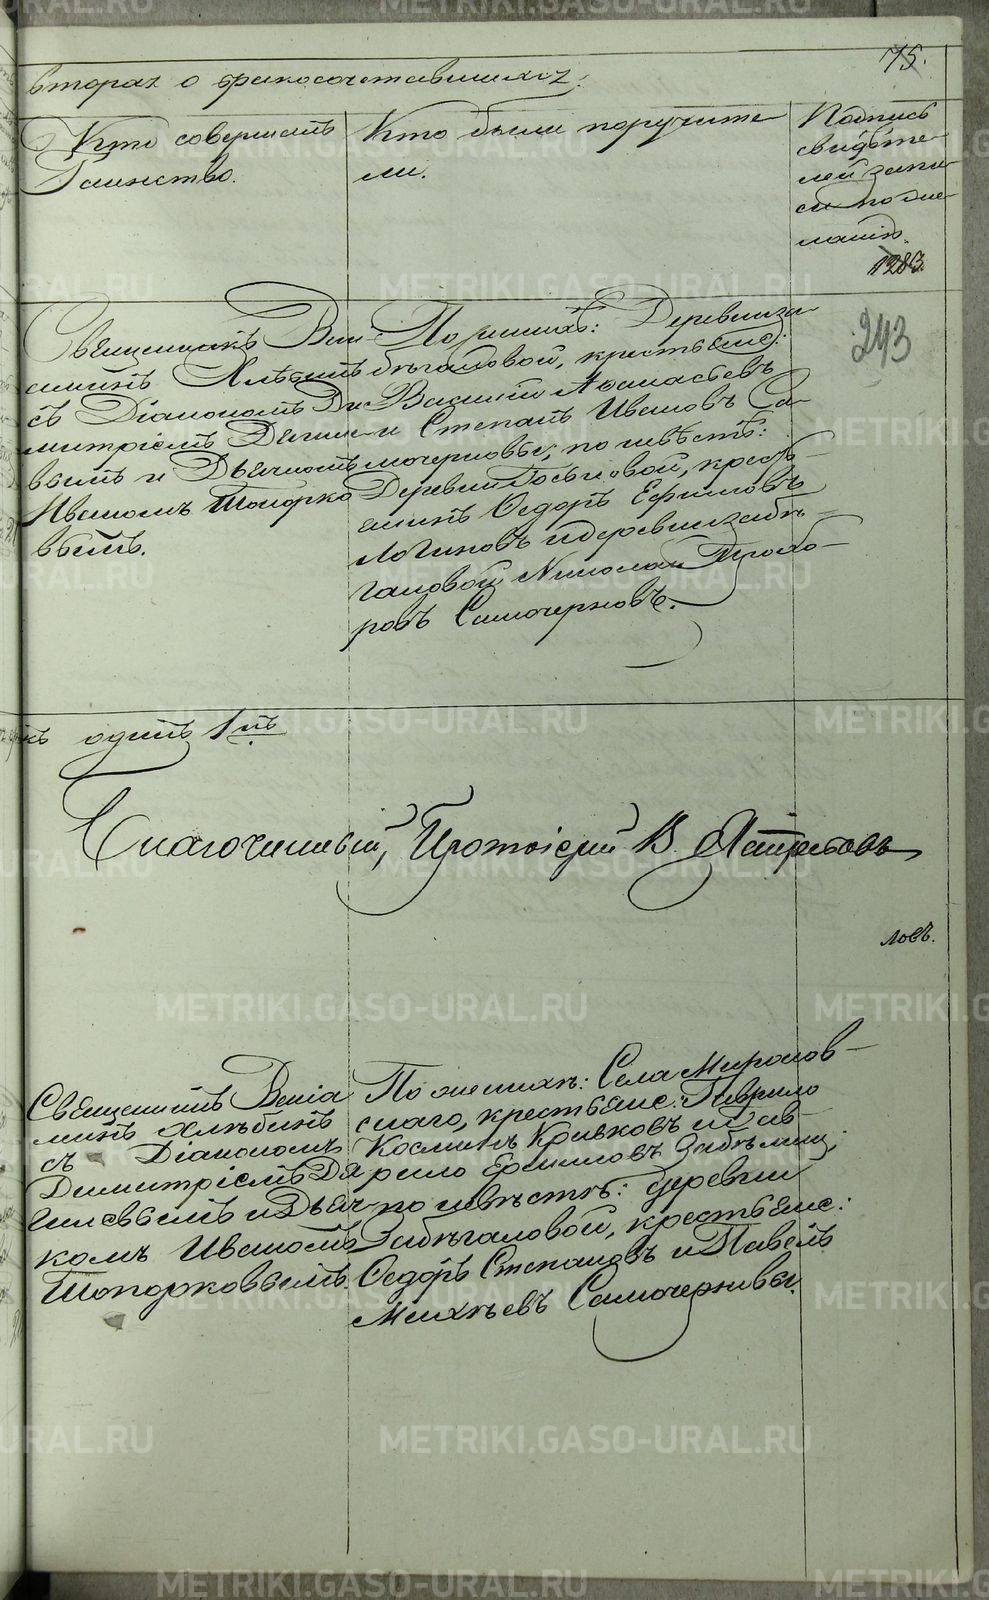 75.
вторая о бракосочетавшихся.
Кто совершалъ
Таинство.
Кто были поручите
ли.
Подпись
свидѣте
лей запи
си по же
ланію.
1283.
243
Священникъ Вені
аминъ Хлѣбинъ
съ Діакономъ Ди
митріемъ
вымъ и Дьячкомъ
Иваномъ Топорко
вымъ.
По женихѣ: Деревни За
бѣгаловой, крестьяне:
Василій Аѳанасьевъ
и Степанъ Ивановъ Са
мочерновы; по невѣстѣ:
Деревни крестья
нинъ Ѳедоръ Ефимовъ
Логиновъ и деревни Забѣ
галовой Николай Прохо
ровъ Самочерновъ.
одинъ 1нъ
Благочинный, Протоіерей В.
ловъ.
Священникъ Веніа
минъ Хлѣбинъ
съ Діакономъ
Димитріемъ Дя
гилевымъ и Дьяч
комъ Иваномъ
Топорковымъ.
По женихѣ: Села Миронов
скаго, крестьяне: Гаврило
Косминъ Кривковъ и Гав
рило Ермиловъ
по невѣстѣ: деревни
Забѣгаловой, крестьяне:
Ѳедоръ Степановъ и Павелъ
Михѣевъ Самочерновы.
METRIKI.GASO-URAL.RU